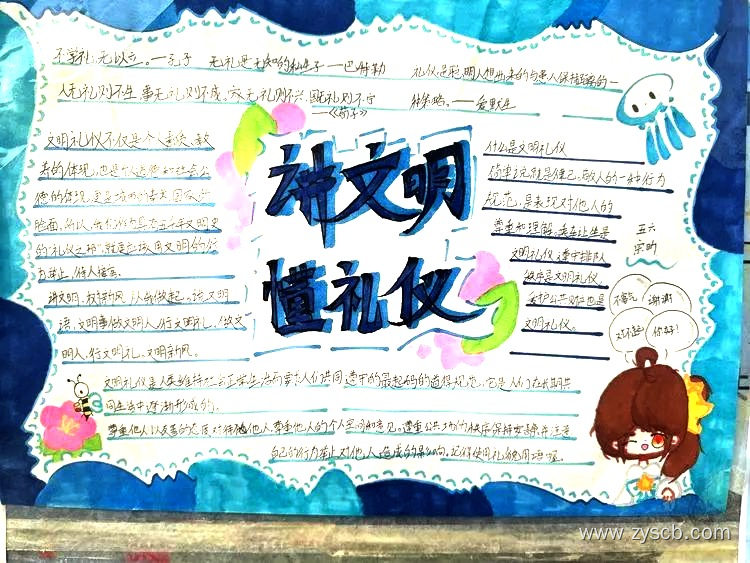 不学礼，无以立。——孔子
无礼是无知的私生子——巴特勒
礼仪是聪明人想出来的与愚人保持距离的一
种策略。——爱默生
人无礼则不生，事无礼则不成，国无礼则不宁
——《荀子》
讲文明
懂礼仪
文明礼仪不仅是个人素质、教
养的体现，也是个人道德和社会公
德的体现，更是城市的
脸面，所以，
的“礼仪之邦”，就更应该用文明的行
为举止，待人
讲文明，树新风，从我做起，说文明
话，文明事做文明人，行文明礼，做文
明人，行文明礼，文明新风。
什么是文明礼仪
简单说就是律己、敬人的一种行为
规范，是表现对他人的
尊重和理解，
文明礼仪，遵守排队
秩序是文明礼仪，
爱护公共财产也是
文明礼仪。
五六
不客气
谢谢
对不起
你好！
文明礼仪是人类维持社会正常生活而要求人们共同遵守的最起码的道德规范，它是人们在长期共
同生活中逐渐形成的。
尊重他人以友善的态度对待他人，尊重他人的个人空间和意见，遵重公共场所的秩序保持安静并注意
自己的行为举止对他人造成的影响，记得使用礼貌用语
www.zyscb.com